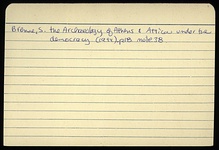 Brome, S. the Archaeology of Athens & Attica under the
democracy (1992), p18 note 38.